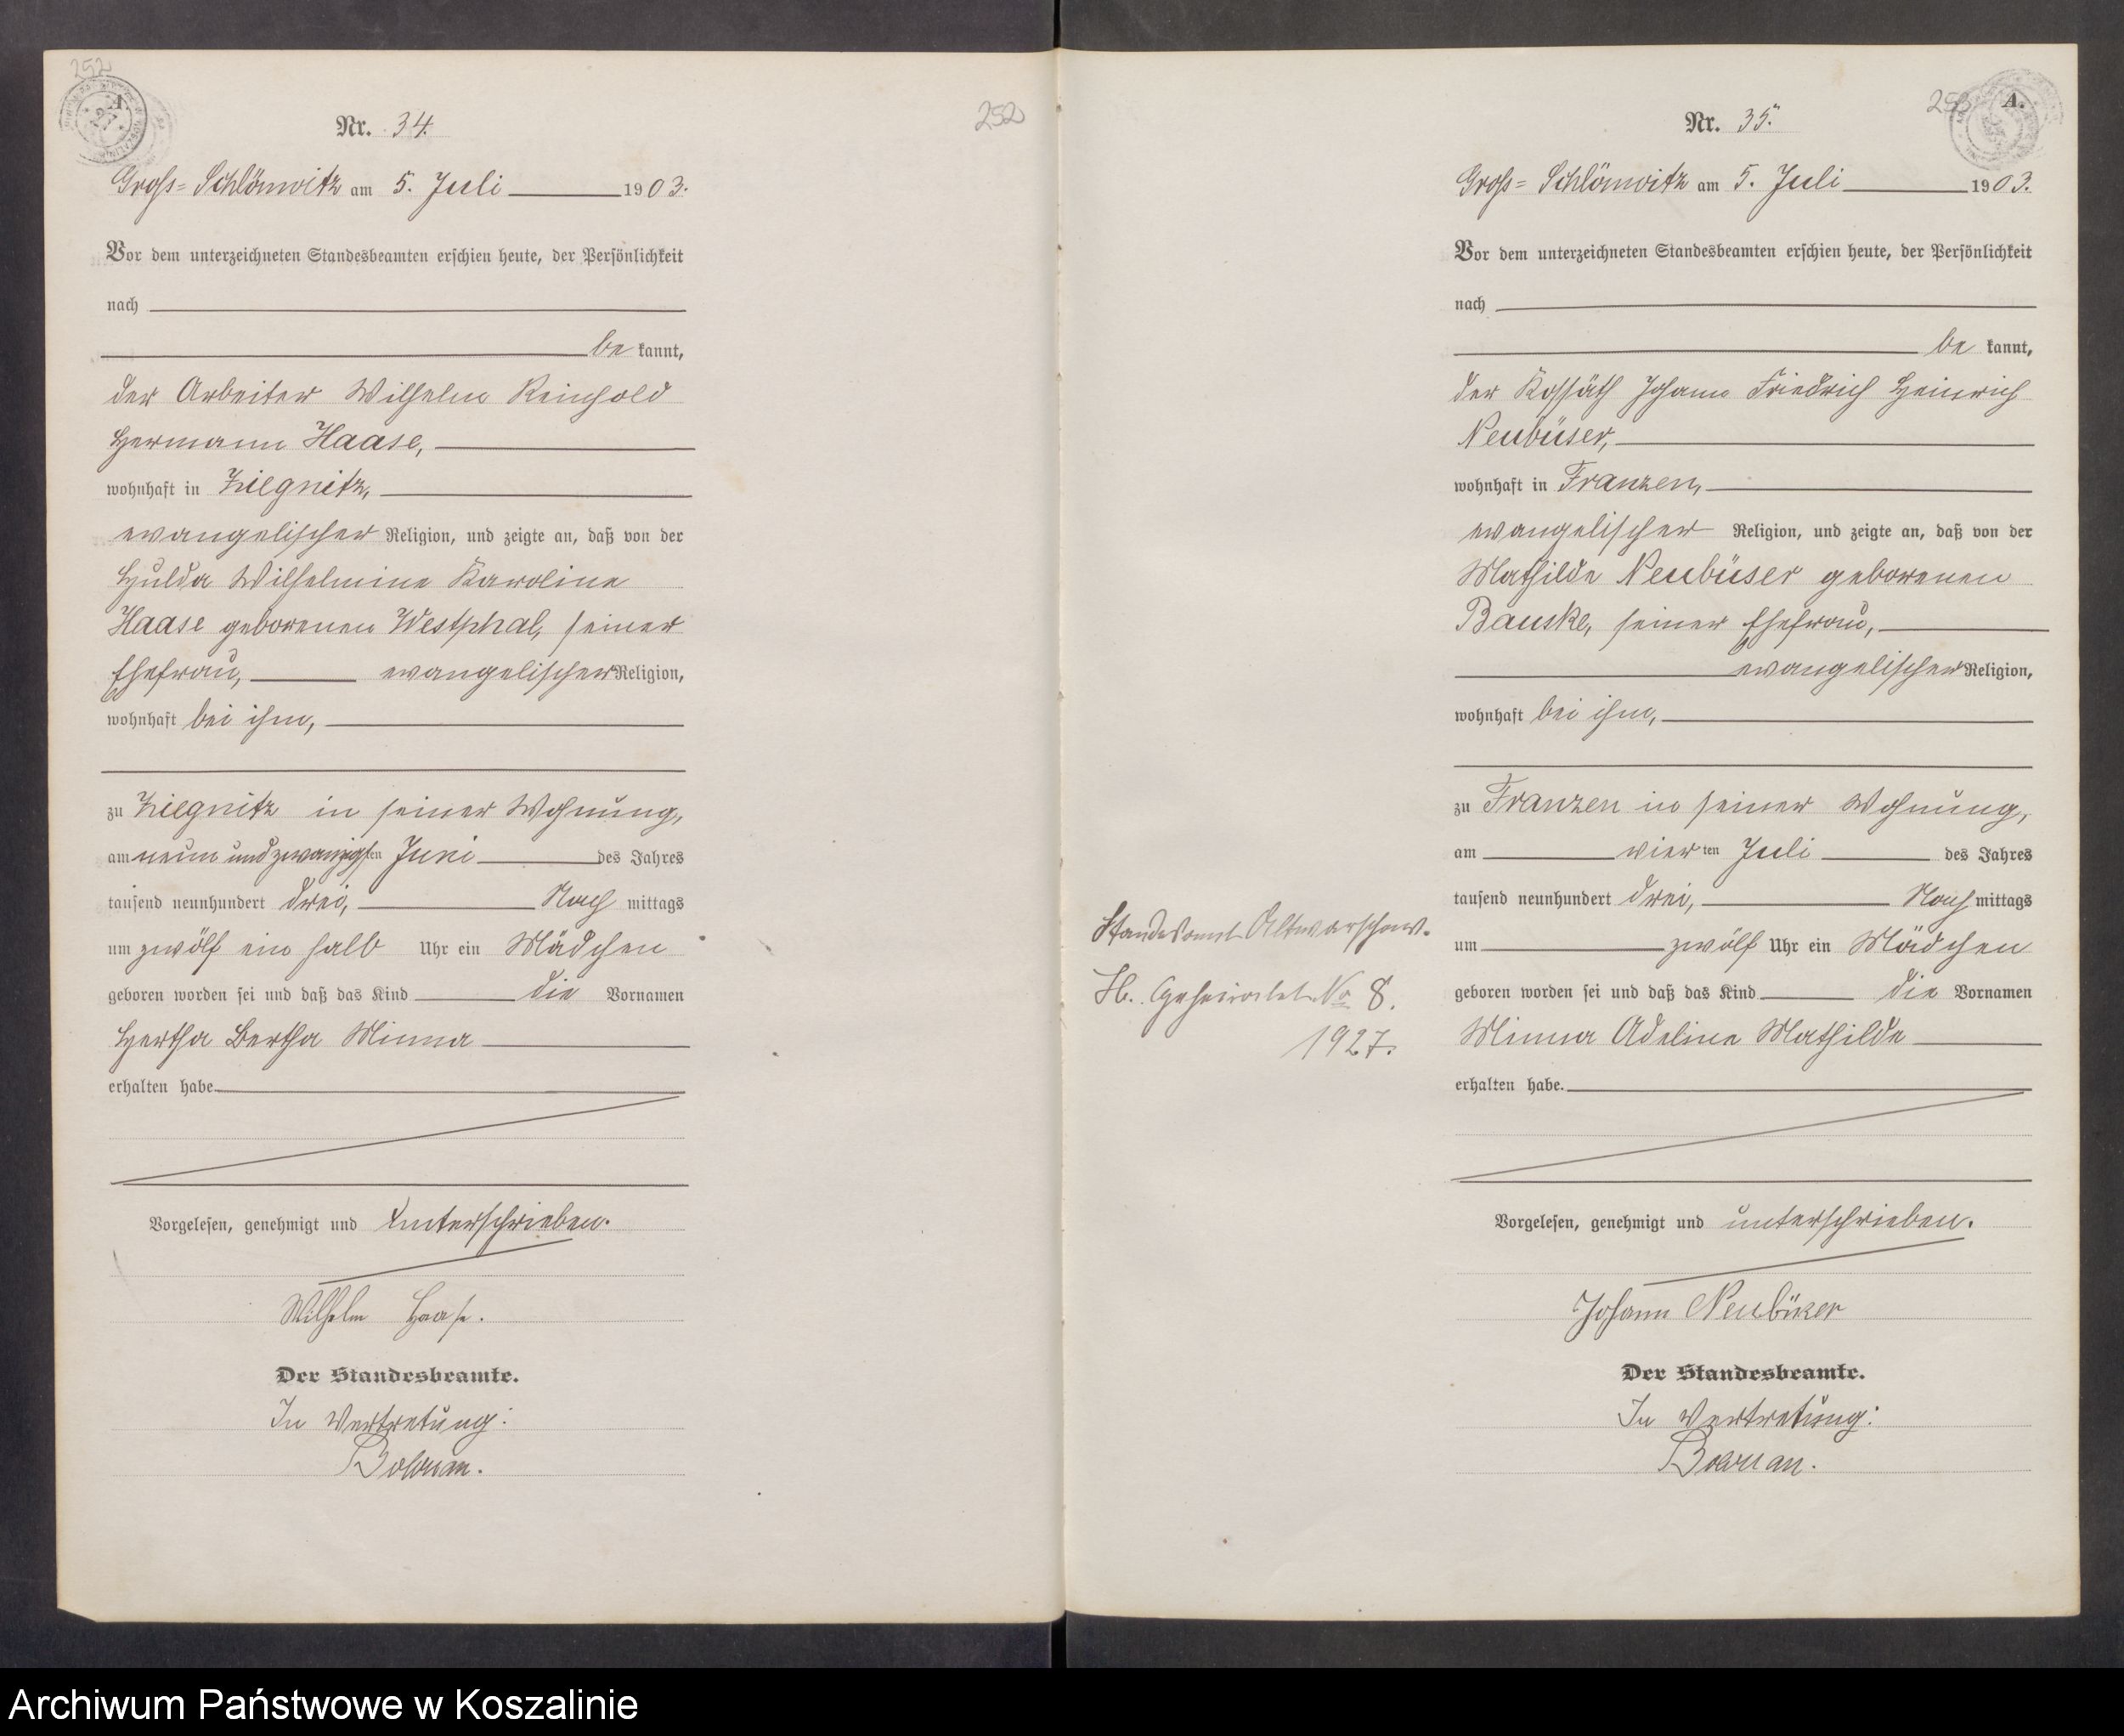 252
A.
27
Nr. 34.
Groß-Schlönwitz am 5. Juli 1903.
Vor dem unterzeichneten Standesbeamten erschien heute, der Persönlichkeit
nach
be kannt,
der Arbeiter Wilhelm Reinhold
Hermann Haase,
wohnhaft in Ziegnitz,
evangelischer Religion, und zeigte an, daß von der
Hulda Wilhelmine Karoline
Haase geborenen Westphal, seiner
Ehefrau, evangelischer Religion,
wohnhaft bei ihm,
zu Ziegnitz in seiner Wohnung,
am neun und zwanzigsten Juni des Jahres
tausend neunhundert drei, Nach mittags
um zwölf ein halb Uhr ein Mädchen
geboren worden sei und daß das Kind die Vornamen
Hertha Bertha Minna
erhalten habe.
Vorgelesen, genehmigt und unterschrieben.
Wilhelm Haase.
Der Standesbeamte.
In Vertretung:
252
A.
Nr. 35.
Groß-Schlönwitz am 5. Juli 1903.
Vor dem unterzeichneten Standesbeamten erschien heute, der Persönlichkeit
nach
be kannt,
der Kossäth Johann Friedrich Heinrich
Neubüser,
wohnhaft in Franzen,
evangelischer Religion, und zeigte an, daß von der
Mathilde Neubüser geborenen
Bauske, seiner Ehefrau,
evangelischer Religion,
wohnhaft bei ihm,
zu Franzen in seiner Wohnung,
am vierten Juli des Jahres
tausend neunhundert drei, Nach mittags
um zwölf Uhr ein Mädchen
geboren worden sei und daß das Kind die Vornamen
Minna Adeline Mathilde
erhalten habe.
Standesamt Altwarschow.
Geheiratet No 8.
1927.
Vorgelesen, genehmigt und unterschrieben.
Johann Neubüser
Der Standesbeamte.
In Vertretung:
Archiwum Państwowe w Koszalinie